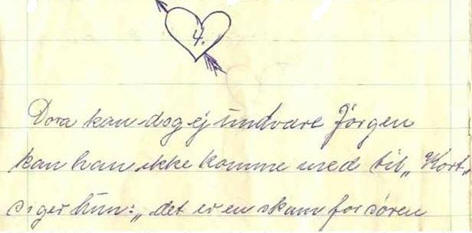 4.
Dora kan dog ej undvare Jörgen
kan han ikke komme med til „Kort„
siger hun: „det er en skam for sören